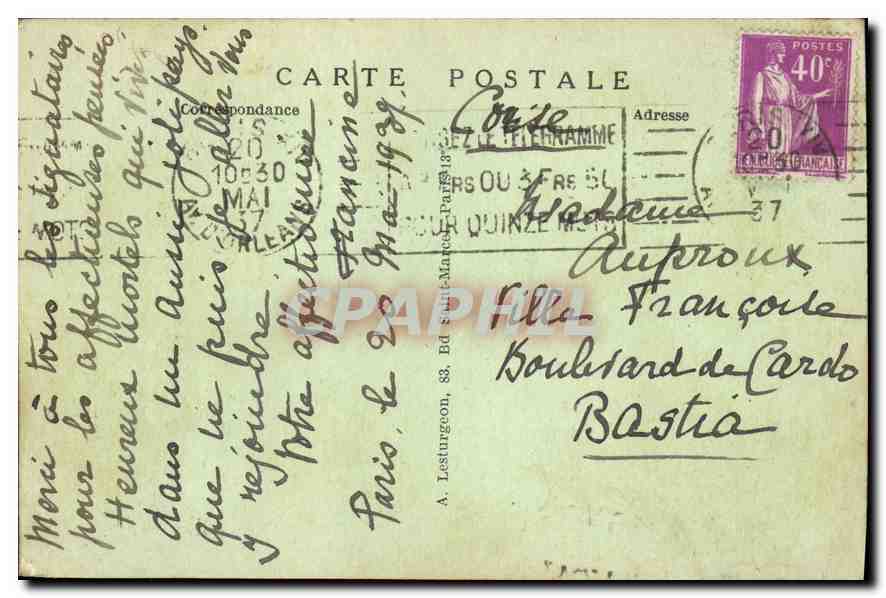 CARTE POSTALE
Correspondance
Adresse
Merci à tous les signataires
pour les affectueuses pensées.
Heureux mortels qui vivez
dans un aussi joli pays.
que ne puis je aller vous
y rejoindre
Votre affectionnée
Francine
Paris, le 20 Mai 1937.
A. Lesturgeon, 83, Bd Saint-Marcel, Paris-13
Corse
Madame
Auproux
Villa Françoise
Boulevard de Cardo
Bastia
POSTES
40c
20
10H30
MAI
37
D'ORLEANS
EZ LE TELEGRAMME
RS OU 3 FRS 50
OUR QUINZE MOTS
MOTS
20
37
CPAPHIL